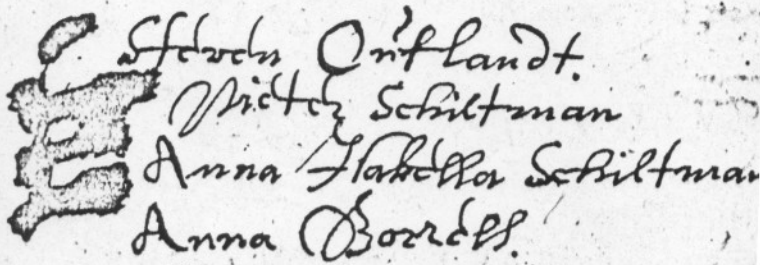 Steven Outlandt.
Pieter Schiltman
Anna Isabella Schiltman
Anna Borrell.